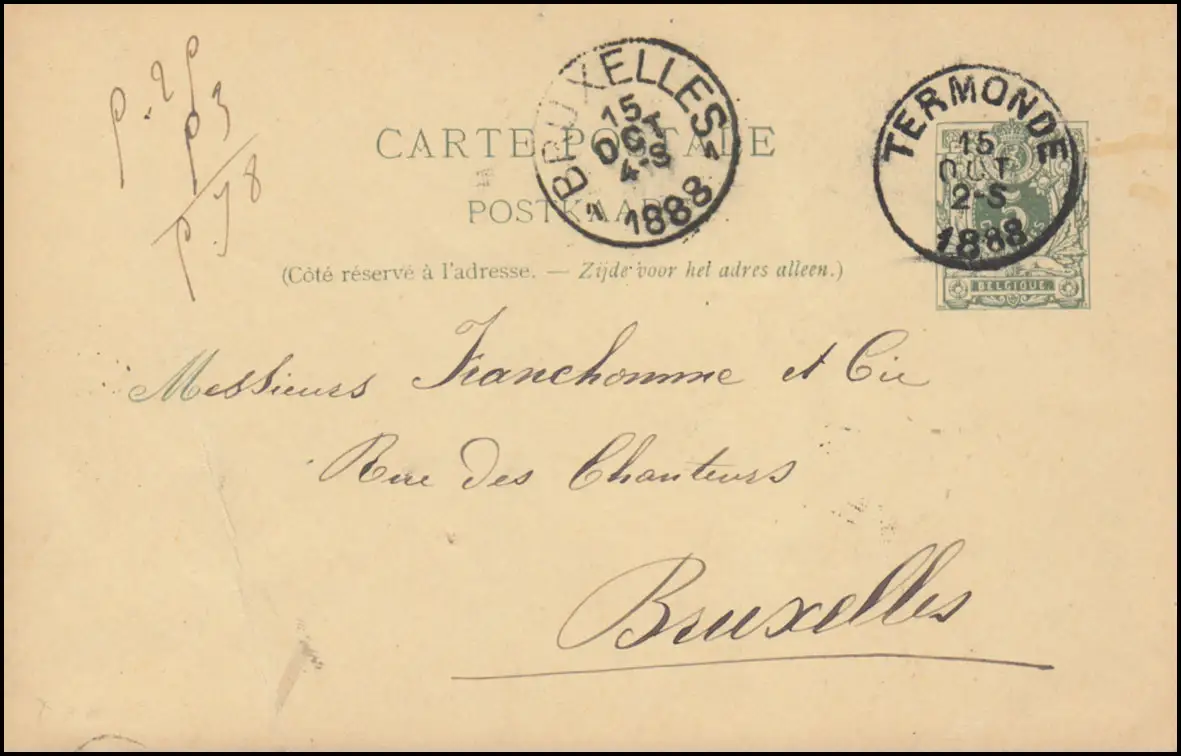 p. 2
p 3
p. 78
BRUXELLES
15
OCT
4-S
1888
TERMONDE
15
OCT
2-S
1888
CARTE POSTALE
POSTKAART
5
BELGIQUE
(Côté réservé à l'adresse. — Zijde voor het adres alleen.)
Messieurs Franchomme et Cie
Rue des Chanteurs
Bruxelles